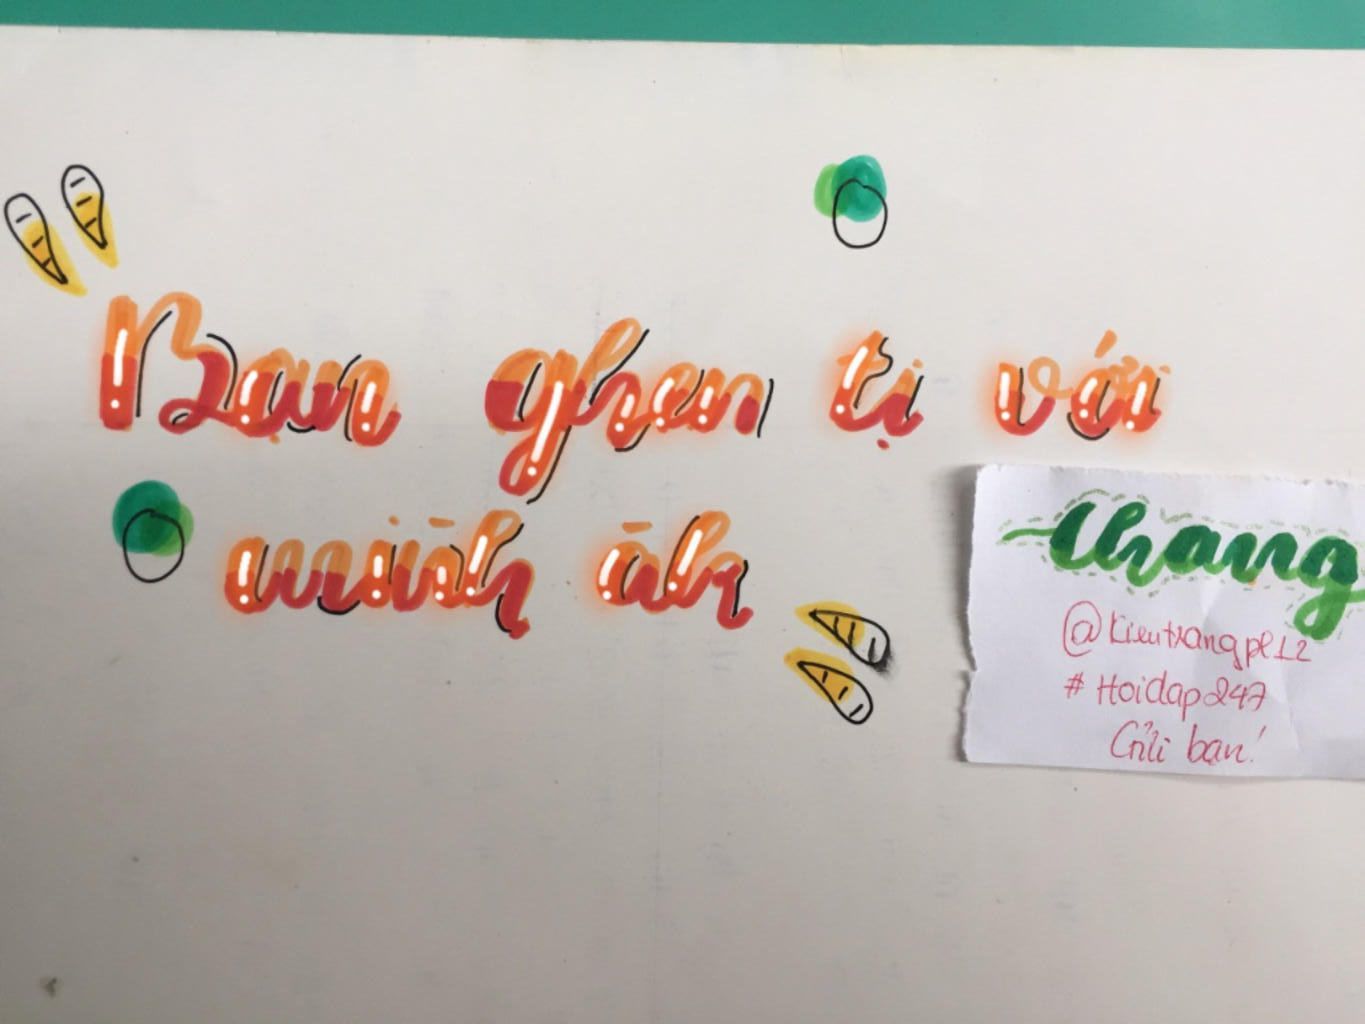 Bạn ghen tị với
mình àk
thang
@kieutrangpl12
#Hoidap247
Gửi bạn!